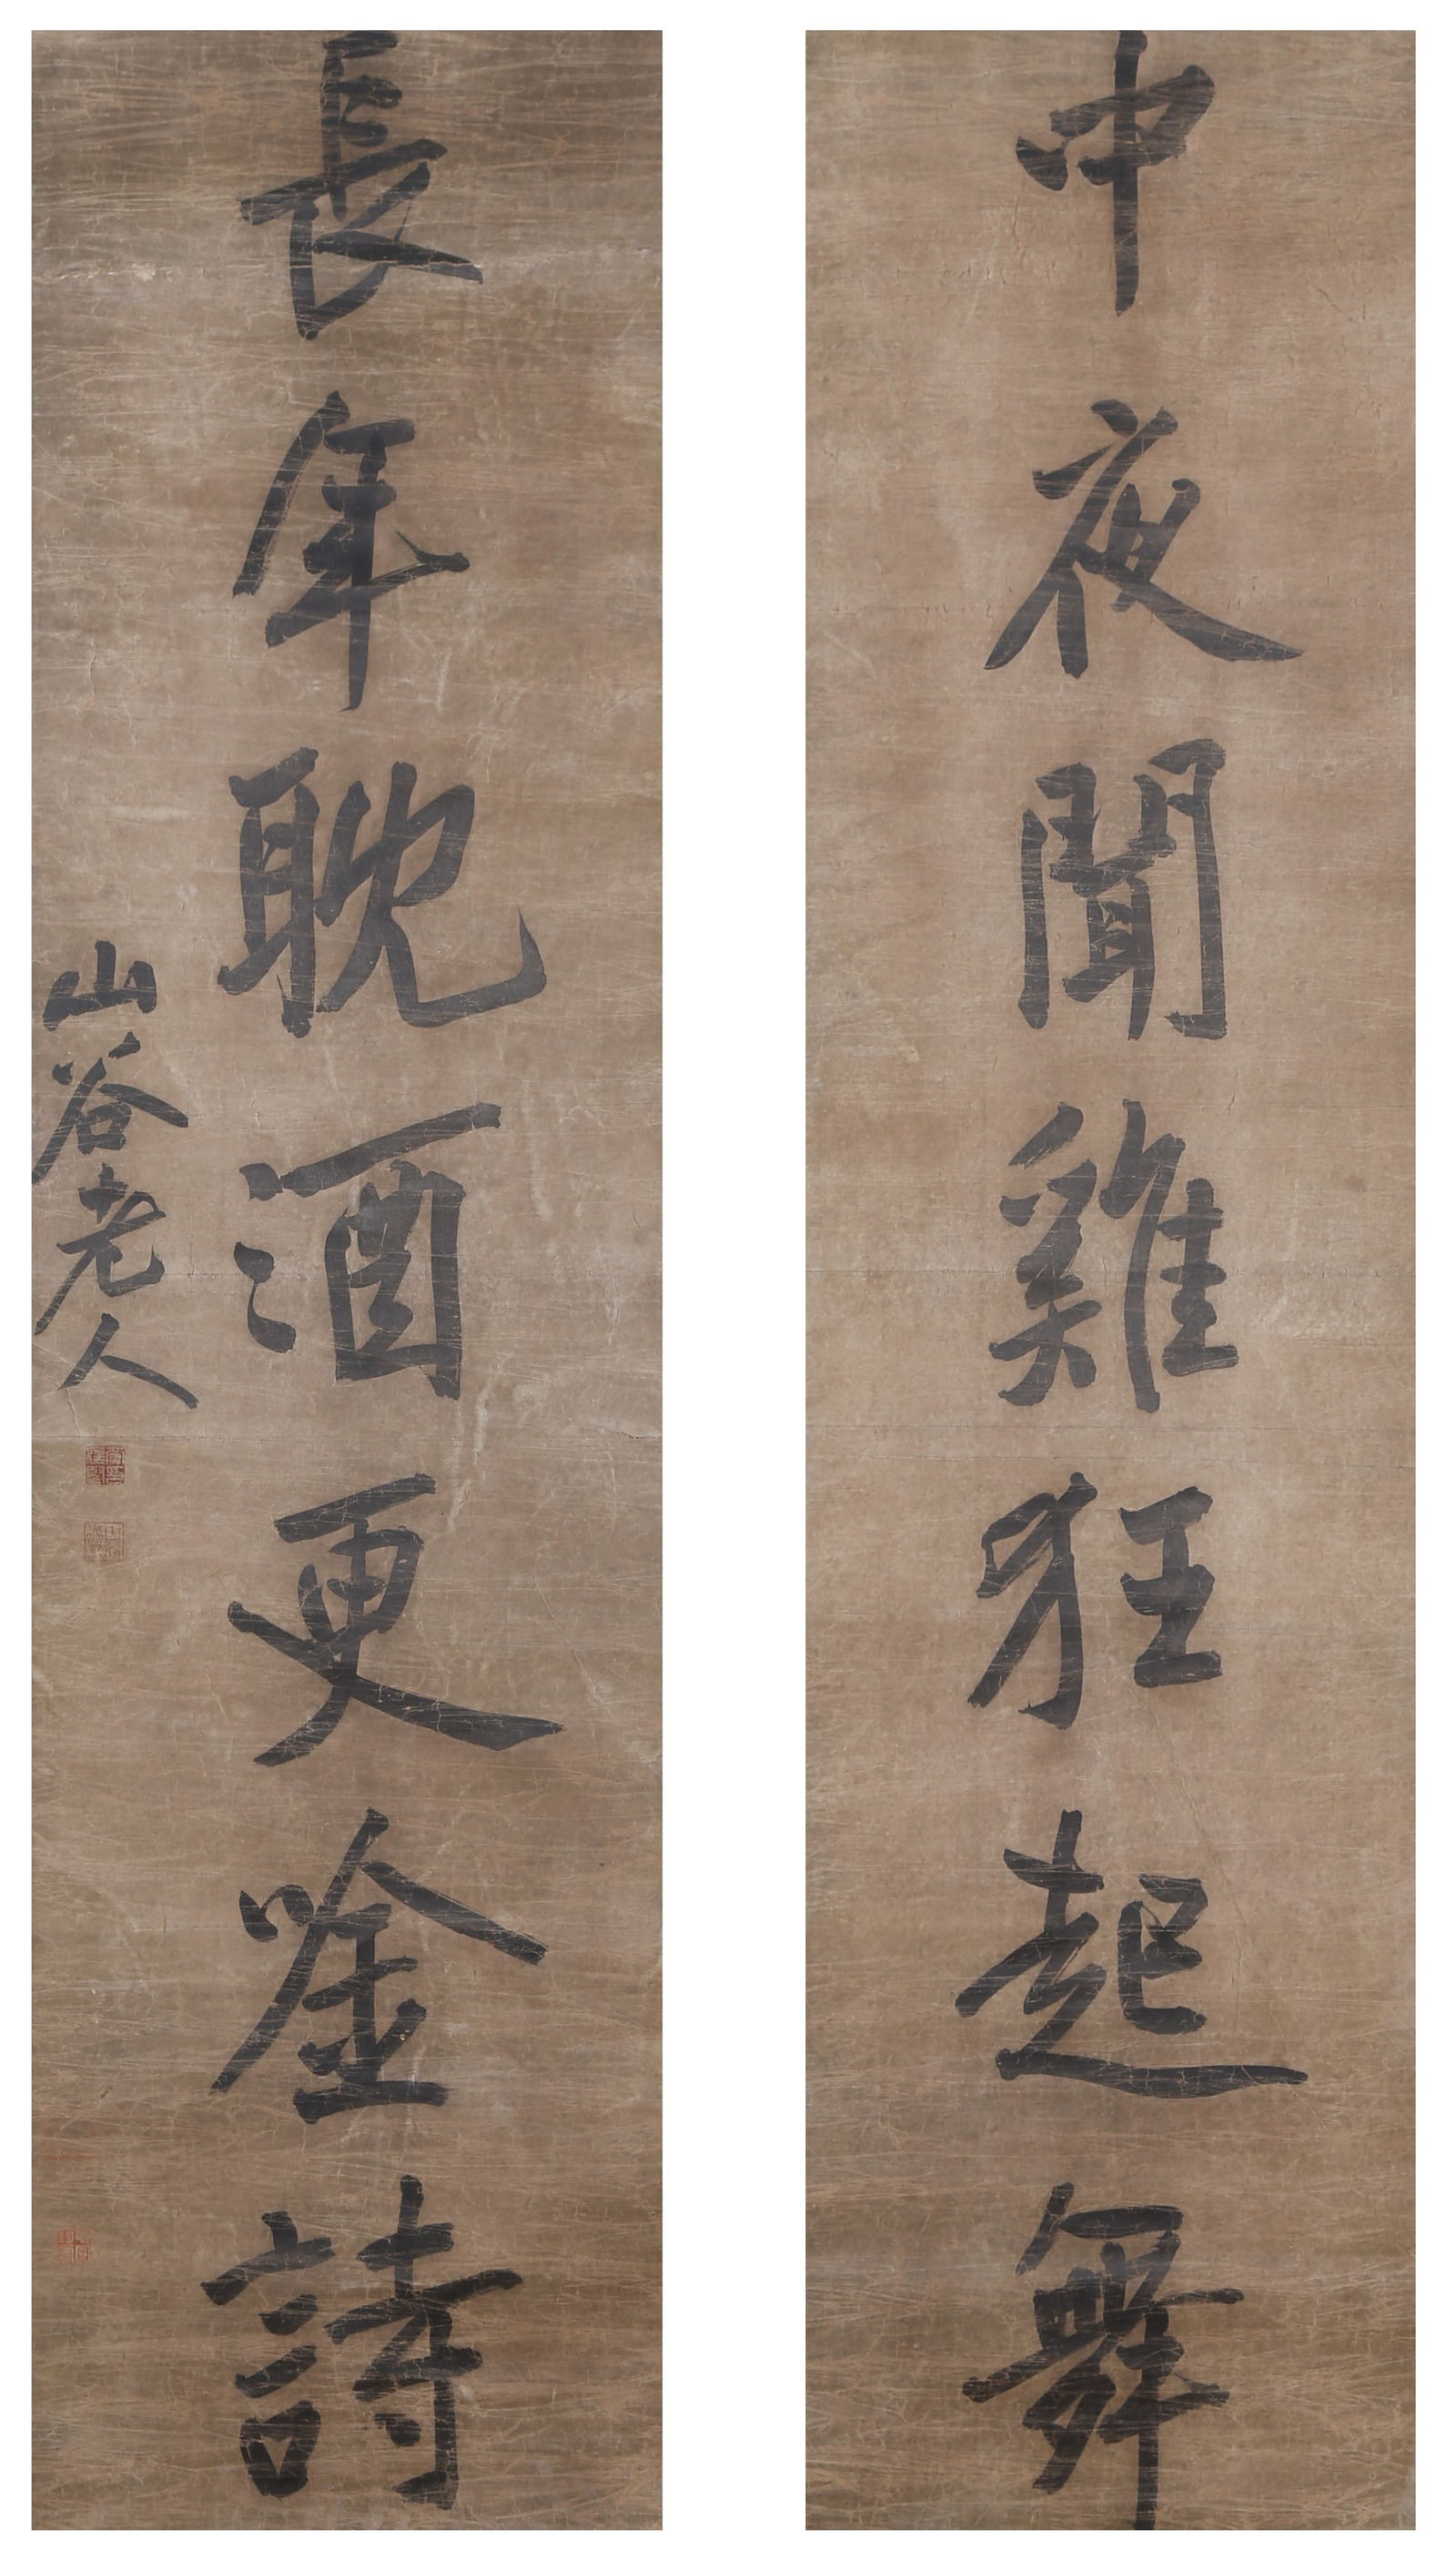 中夜聞雞狂起舞
長年耽酒更唫詩
山谷老人